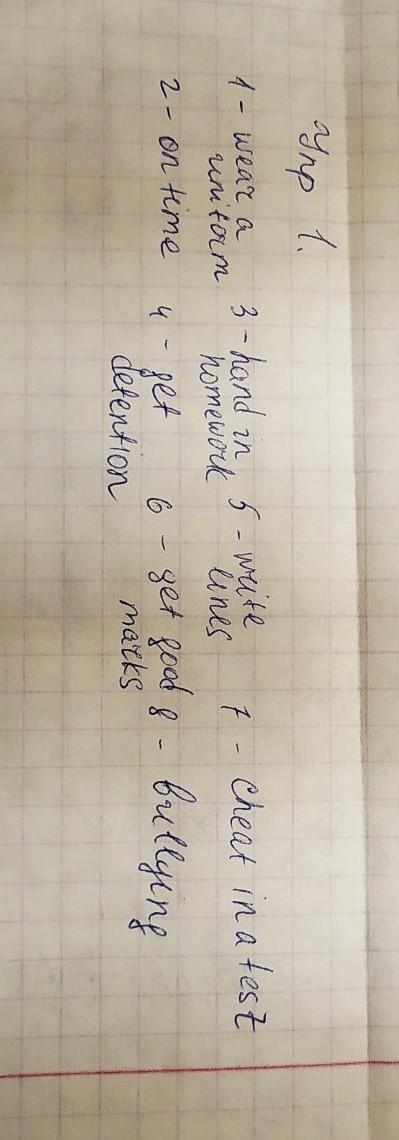 Упр 1.
1 - wear a uniform 3 - hand in homework 5 - write lines 7 - cheat in a test
2 - on time 4 - get detention 6 - get good marks 8 - bullying